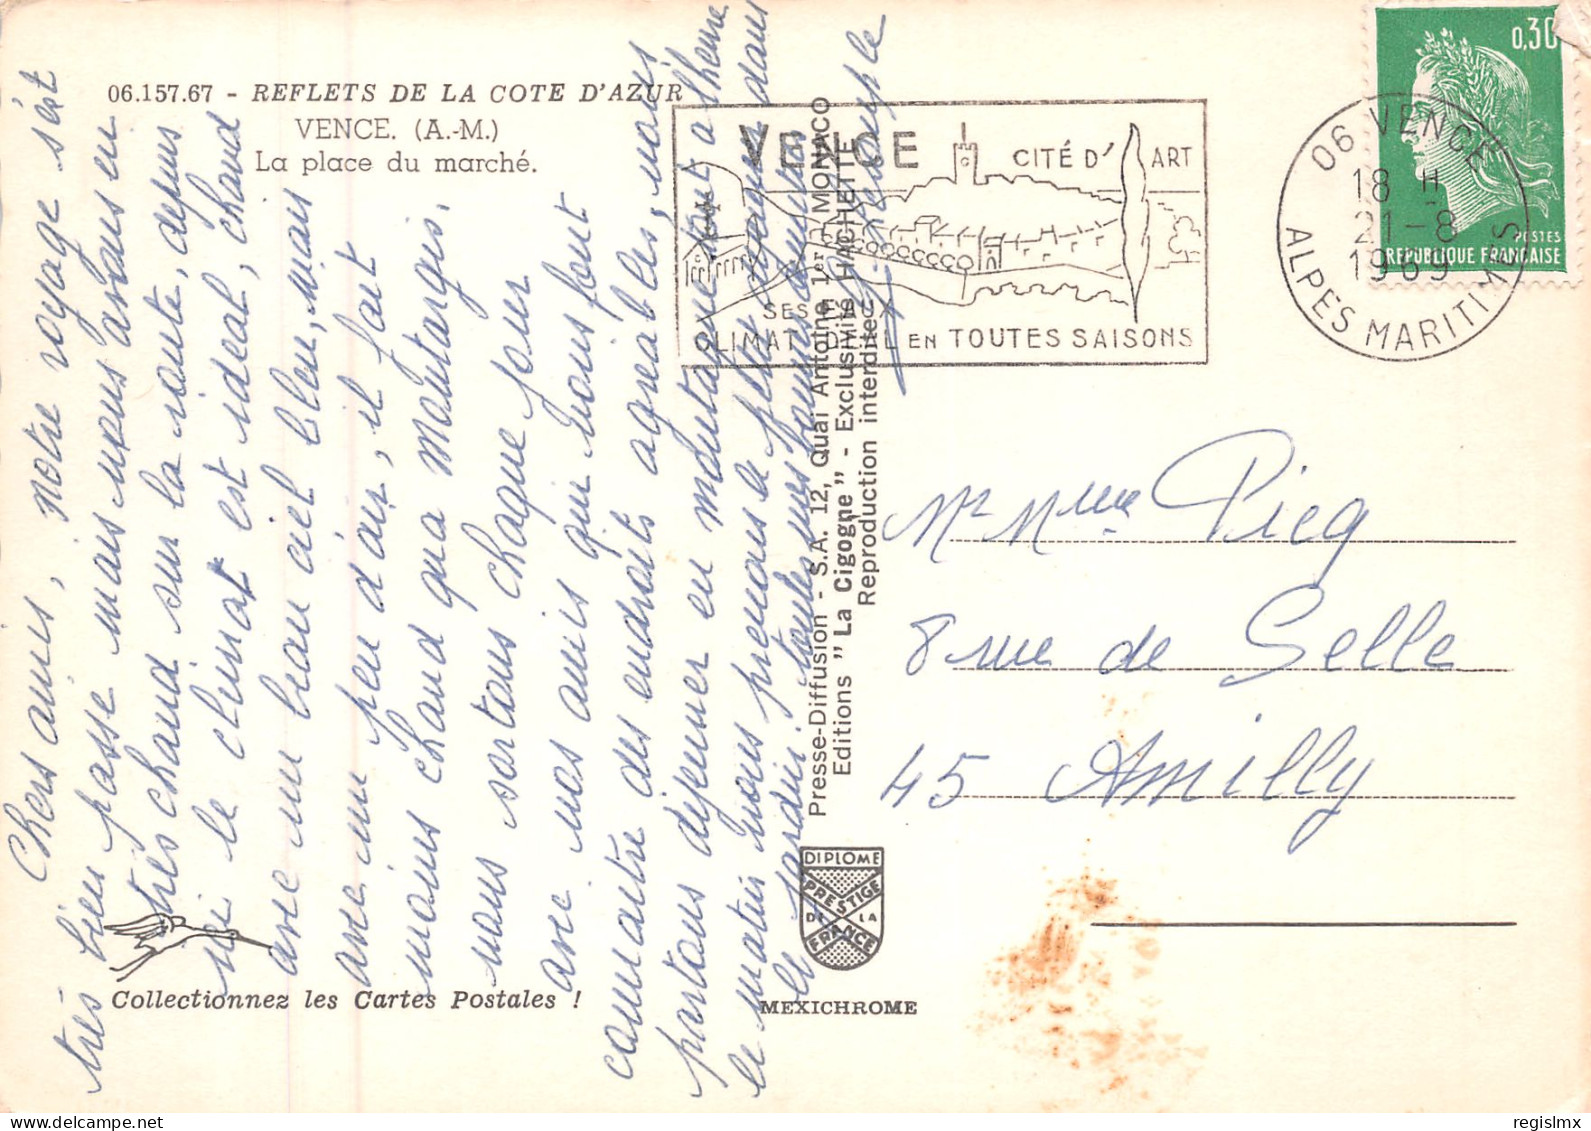 06.157.67 - REFLETS DE LA COTE D'AZUR
VENCE. (A.-M.)
La place du marché.
Chers amis, notre voyage s'est
très bien passé mais nous avons eu
très chaud sur la route, depuis
ici le climat est idéal, chaud
avec un beau ciel bleu, mais
avec un peu d'air, il fait
moins chaud qu'a Montargis.
nous sortons chaque jour
avec nos amis qui nous font
connaitre des endroits agréables, nous
partons déjeuner en montagne
le matin nous prenons la
le jardin, toutes nos bonnes amitiés
Collectionnez les Cartes Postales !
Presse-Diffusion - S.A. 12, Quai Antoine 1er - MONACO
Editions "La Cigogne" - Exclusivité HACHETTE
Reproduction interdite
DIPLOME
PRESTIGE
DE LA
FRANCE
MEXICHROME
VENCE
CITÉ D'ART
SES EAUX
CLIMAT IDEAL EN TOUTES SAISONS
06 VENCE
18 H
21-8
1969
ALPES MARITIMES
0,30
POSTES
REPUBLIQUE FRANÇAISE
Mr Mme Picq
8 rue de Selle
45 Amilly
regislmx